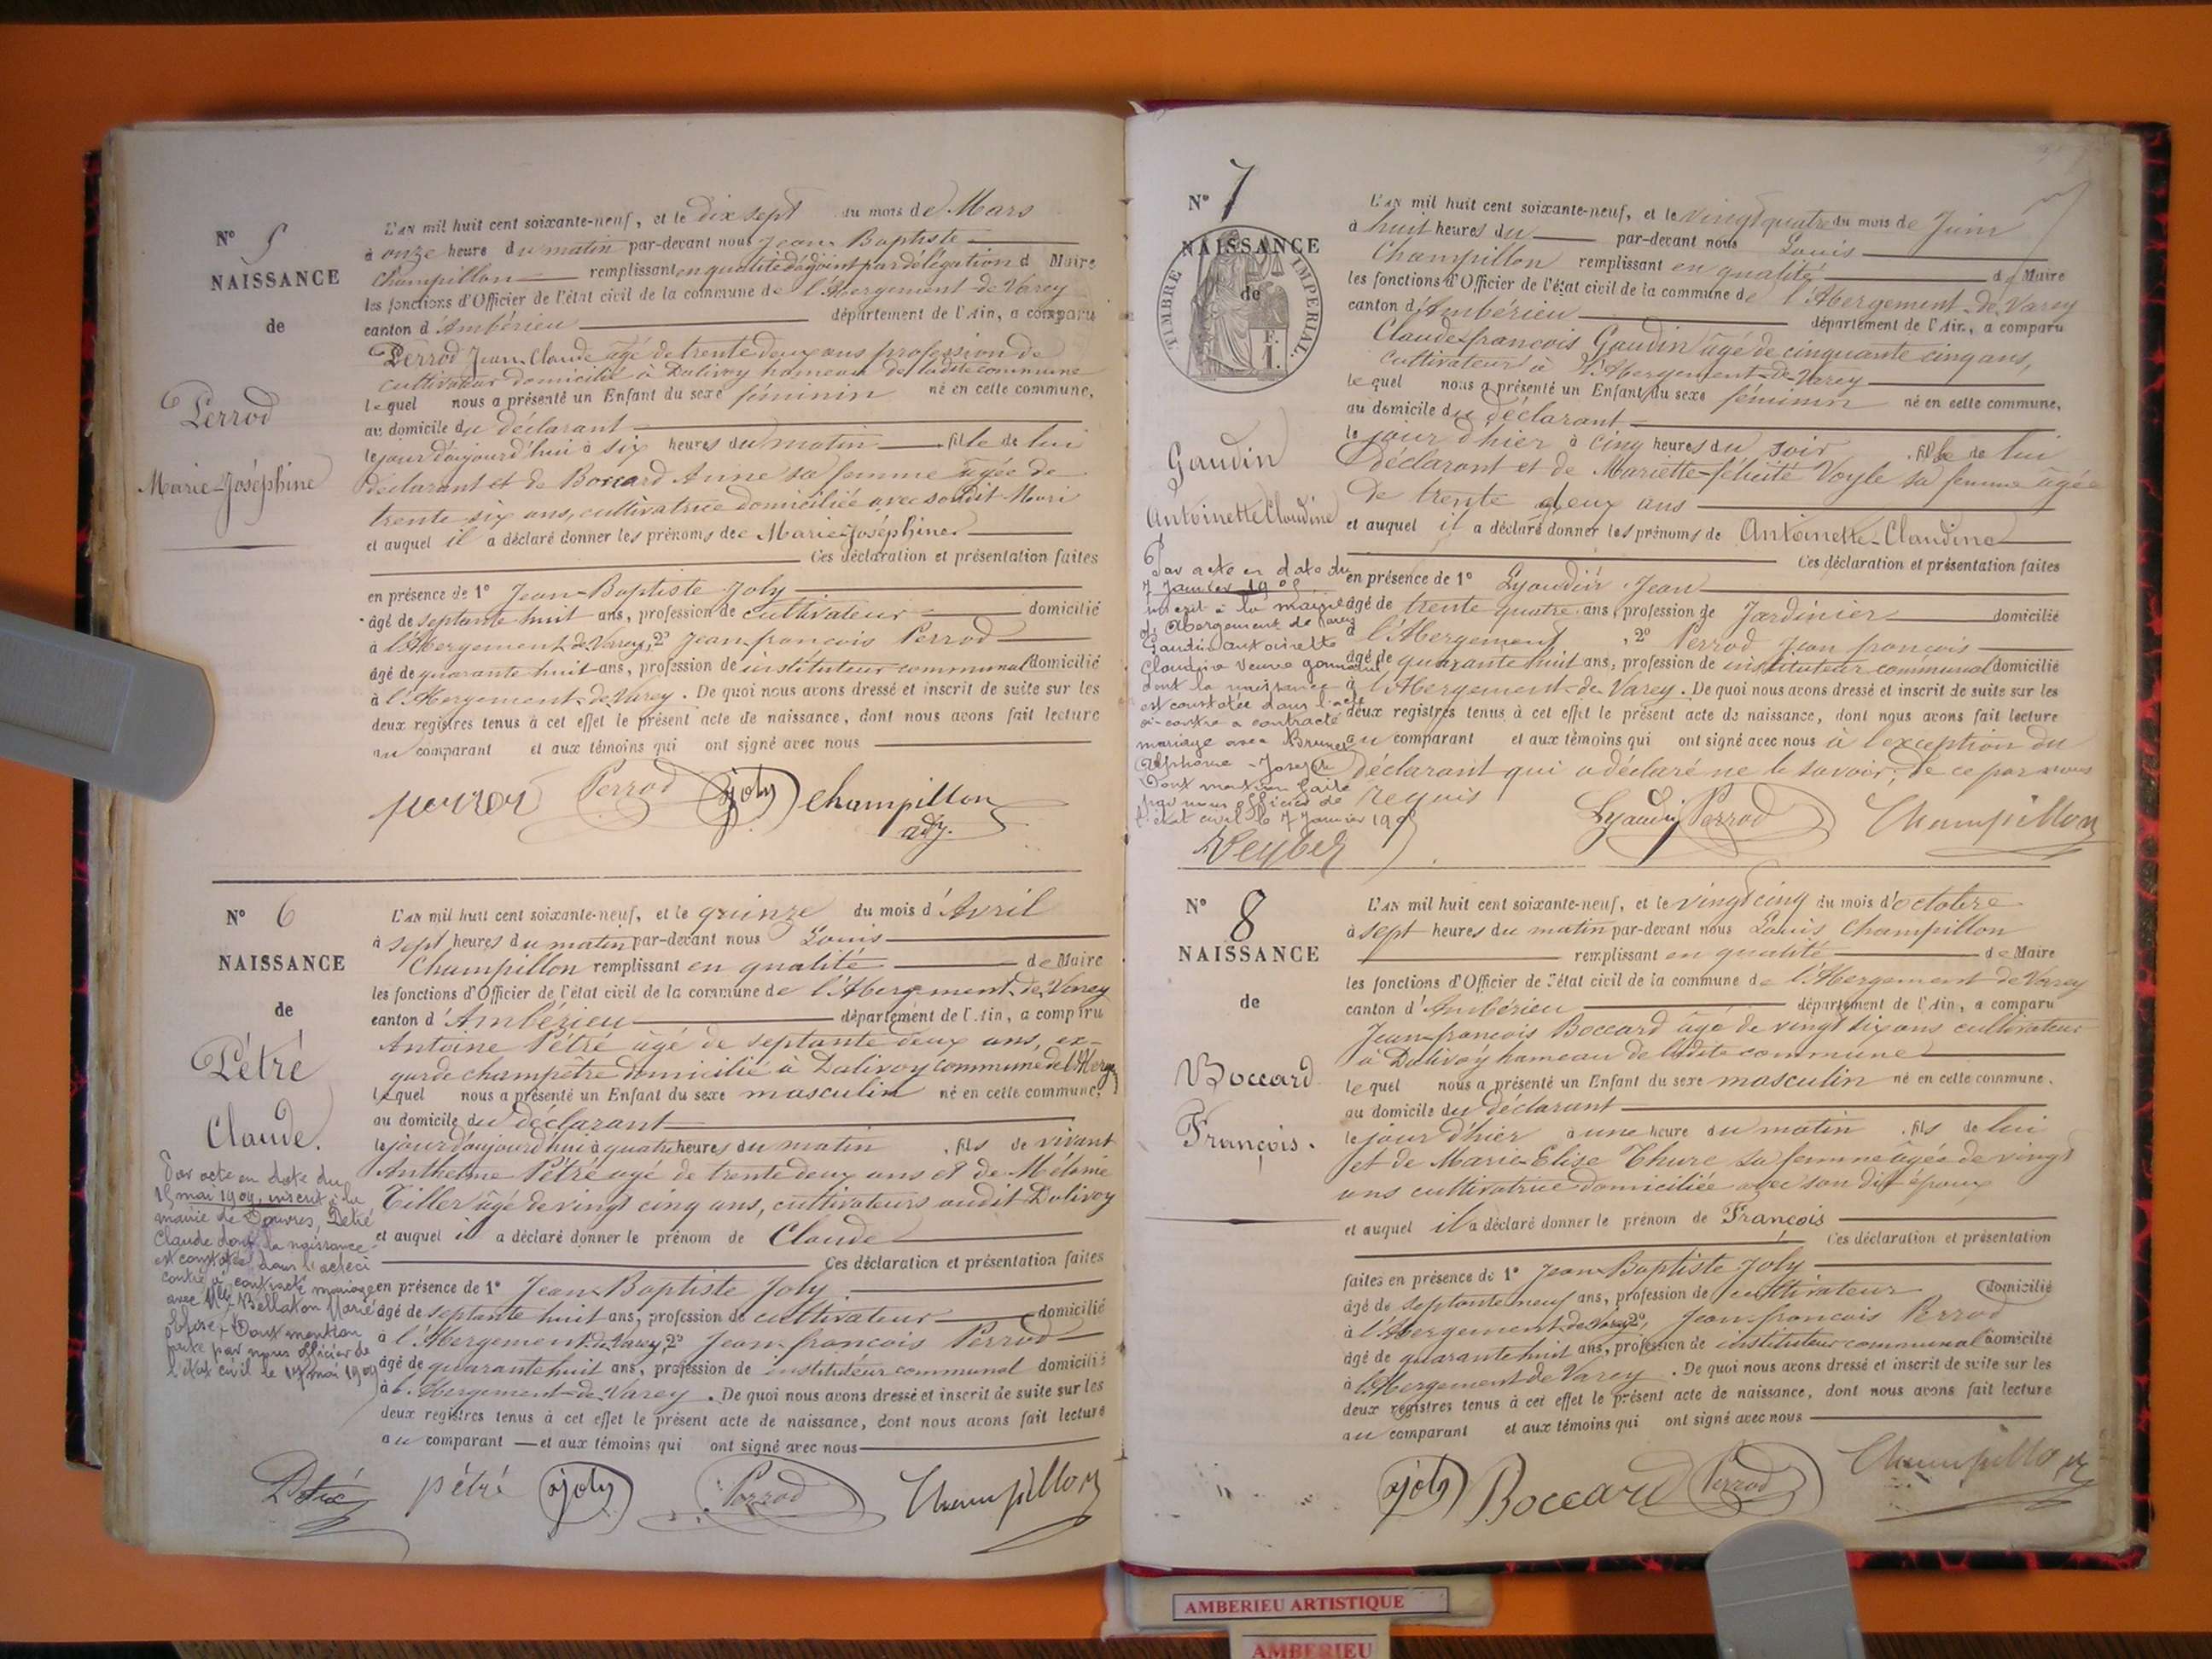 N° 5
NAISSANCE
de
Perrod
Marie-Joséphine
L'AN mil huit cent soixante-neuf, et le dix sept du mois de Mars
à onze heure du matin par-devant nous Jean-Baptiste
Champillon remplissant en qualité d'adjoint par délégation d Maire
les fonctions d'Officier de l'état civil de la commune de l'Abergement-de-Varey
canton d'Ambérieu département de l'Ain, a comparu
Perrod Jean-Claude âgé de trente deux ans profession de
cultivateur domicilié à Dalivoy hameau de ladite commune
lequel nous a présenté un Enfant du sexe féminin né en cette commune,
au domicile du déclarant
le jour d'aujourd'hui à six heures du matin fille de lui
déclarant et de Boccard Anne sa femme âgée de
trente six ans, cultivatrice domiciliée avec sondit Mari
et auquel il a déclaré donner les prénoms de Marie-Joséphine
Ces déclaration et présentation faites
en présence de 1° Jean-Baptiste Joly
âgé de septante huit ans, profession de cultivateur domicilié
à l'Abergement-de-Varey, 2° Jean-françois Perrod
âgé de quarante huit ans, profession de instituteur communal domicilié
à l'Abergement-de-Varey. De quoi nous avons dressé et inscrit de suite sur les
deux registres tenus à cet effet le présent acte de naissance, dont nous avons fait lecture
au comparant et aux témoins qui ont signé avec nous
perrod Perrod joly champillon
adj.
N° 6
NAISSANCE
de
Pétré
Claude.
L'AN mil huit cent soixante-neuf, et le quinze du mois d'Avril
à sept heures du matin par-devant nous Louis
Champillon remplissant en qualité de Maire
les fonctions d'Officier de l'état civil de la commune de l'Abergement-de-Varey
canton d'Ambérieu département de l'Ain, a comparu
Antoine Pétré âgé de septante deux ans, ex-
garde champêtre domicilié à Dalivoy commune de l'Aberg
lequel nous a présenté un Enfant du sexe masculin né en cette commune,
au domicile du déclarant
le jour d'aujourd'hui à quatre heures du matin, fils de vivant
Anthelme Pétré âgé de trente deux ans et de Mélanie
Tiller âgé de vingt cinq ans, cultivateurs audit Dalivoy
et auquel il a déclaré donner le prénom de Claude
Ces déclaration et présentation faites
en présence de 1° Jean-Baptiste Joly
âgé de septante huit ans, profession de cultivateur domicilié
à l'Abergement-de-Varey, 2° Jean-françois Perrod
âgé de quarante huit ans, profession de instituteur communal domicilié
à l'Abergement-de-Varey. De quoi nous avons dressé et inscrit de suite sur les
deux registres tenus à cet effet le présent acte de naissance, dont nous avons fait lecture
au comparant et aux témoins qui ont signé avec nous
Par acte en date du
15 mai 1909, inscrit à la
mairie de Douvres, Pétré
Claude dont la naissance
est constatée dans l'acte ci
contre a contracté mariage
avec Mlle Bellaton Marie
Dont mention
faite par nous officier de
l'état civil le 17 mai 1909
Pétré pétré joly Perrod Champillon
N° 7
NAISSANCE
de
TIMBRE IMPERIAL.
F.
1.
Gaudin
Antoinette Claudine
L'AN mil huit cent soixante-neuf, et le vingt quatre du mois de Juin
à huit heures du par-devant nous Louis
Champillon remplissant en qualité de Maire
les fonctions d'Officier de l'état civil de la commune de l'Abergement-de-Varey
canton d'Ambérieu département de l'Ain, a comparu
Claude-françois Gaudin âgé de cinquante cinq ans,
cultivateur à l'Abergement-de-Varey
lequel nous a présenté un Enfant du sexe féminin né en cette commune,
au domicile du déclarant
le jour d'hier à cinq heures du soir, fille de lui
déclarant et de Mariette-félicité Voyle sa femme âgée
de trente deux ans
et auquel il a déclaré donner les prénoms de Antoinette-Claudine
Ces déclaration et présentation faites
en présence de 1° Lyaudin Jean
âgé de trente quatre ans, profession de Jardinier domicilié
à l'Abergement, 2° Perrod Jean françois
âgé de quarante huit ans, profession de instituteur communal domicilié
à l'Abergement-de-Varey. De quoi nous avons dressé et inscrit de suite sur les
deux registres tenus à cet effet le présent acte de naissance, dont nous avons fait lecture
au comparant et aux témoins qui ont signé avec nous à l'exception du
déclarant qui a déclaré ne le savoir, de ce par nous
requis
Par acte en date du
7 Janvier 19
inscrit à la mairie
de Abergement de Varey
Gaudin antoinette
Claudine veuve
dont la naissance
est constatée dans l'acte
ci-contre a contracté
mariage avec Brunet
Alphonse-Joseph
Dont mention faite
par nous officier de
l'état civil le 7 Janvier 19
Lyaudin Perrod Champillon
N° 8
NAISSANCE
de
Boccard
François.
L'AN mil huit cent soixante-neuf, et le vingt cinq du mois d'octobre
à sept heures du matin par-devant nous Louis Champillon
remplissant en qualité de Maire
les fonctions d'Officier de l'état civil de la commune de l'Abergement de Varey
canton d'Ambérieu département de l'Ain, a comparu
Jean-françois Boccard âgé de vingt six ans cultivateur
à Dalivoy hameau de ladite commune
lequel nous a présenté un Enfant du sexe masculin né en cette commune.
au domicile du déclarant
le jour d'hier à une heure du matin, fils de lui
et de Marie-Elise Thure sa femme âgée de vingt
ans cultivatrice domiciliée avec son dit époux
et auquel il a déclaré donner le prénom de François
Ces déclaration et présentation
faites en présence de 1° Jean-Baptiste Joly
âgé de septante neuf ans, profession de cultivateur domicilié
à l'Abergement de Varey 2°, Jean-françois Perrod
âgé de quarante huit ans, profession de instituteur communal domicilié
à l'Abergement de Varey. De quoi nous avons dressé et inscrit de suite sur les
deux registres tenus à cet effet le présent acte de naissance, dont nous avons fait lecture
au comparant et aux témoins qui ont signé avec nous
joly Boccard Perrod Champillon
AMBERIEU ARTISTIQUE
AMBERIEU